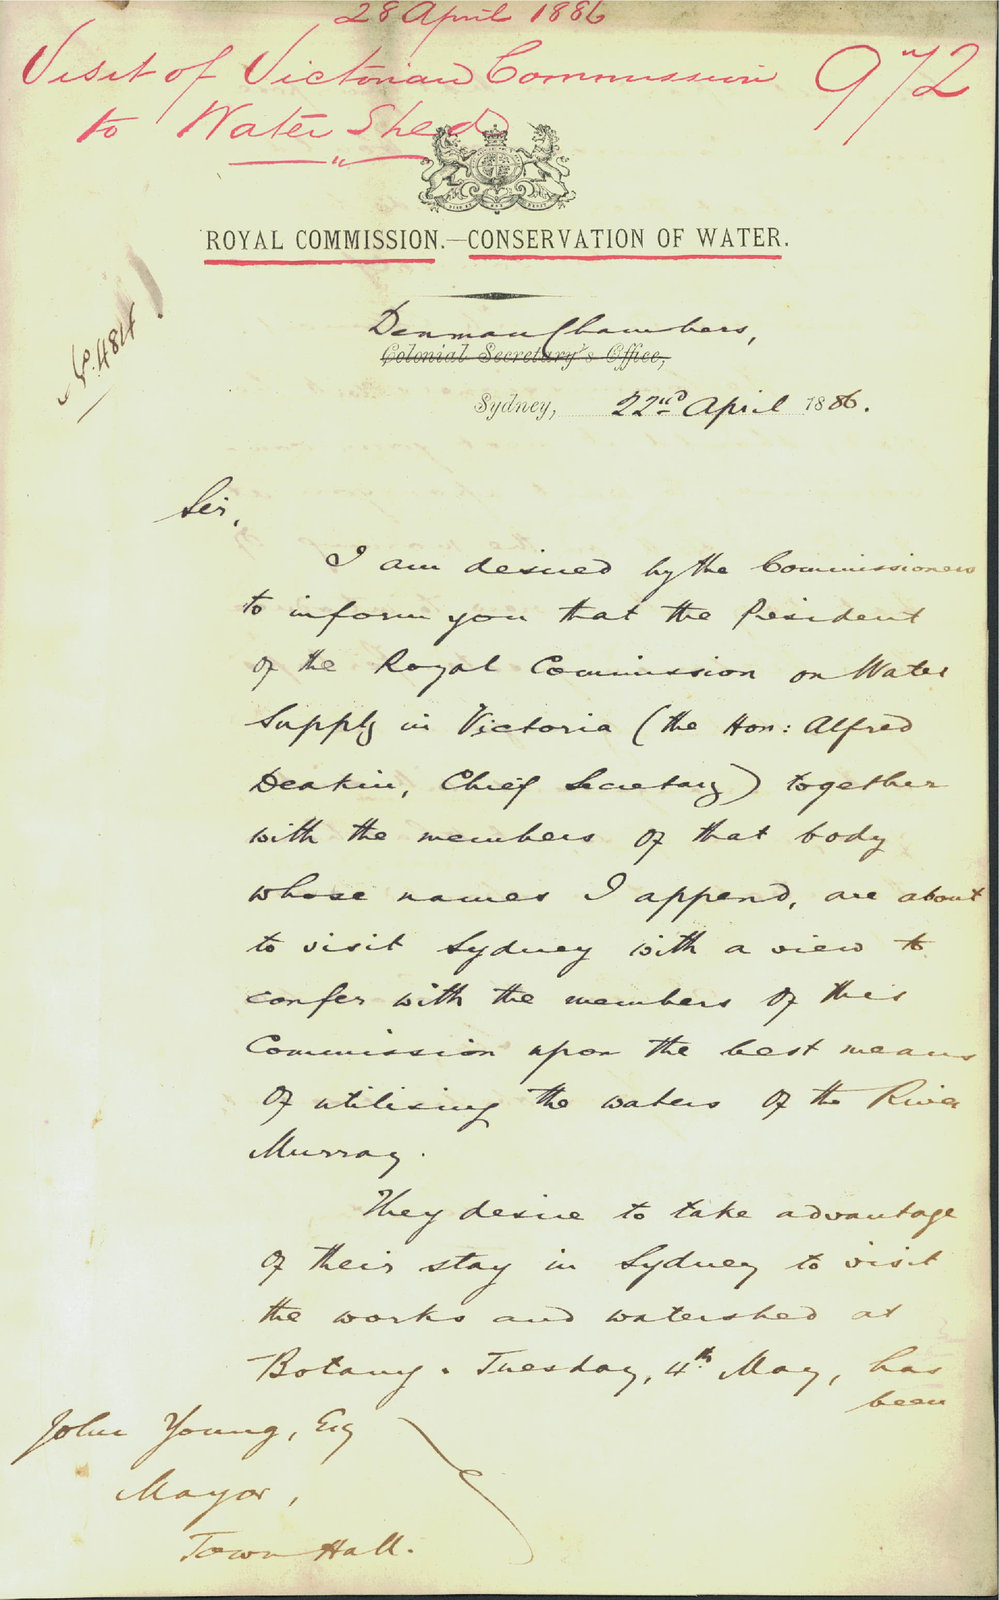 28 April 1886
Visit of Victorian Commission 972
to Water Shed
ROYAL COMMISSION.—CONSERVATION OF WATER.
Denman Chambers,
Colonial Secretary's Office,
Sydney, 22nd April 1886.
Sir,
I am desired by the Commissioners
to inform you that the President
of the Royal Commission on Water
Supply in Victoria (the Hon: Alfred
Deakin, Chief Secretary) together
with the members of that body
whose names I append, are about
to visit Sydney with a view to
confer with the members of this
Commission upon the best means
of utilising the waters of the River
Murray.
They desire to take advantage
of their stay in Sydney to visit
the works and watershed at
Botany. Tuesday, 4th May, has
been
John Young, Esq
Mayor,
Town Hall.